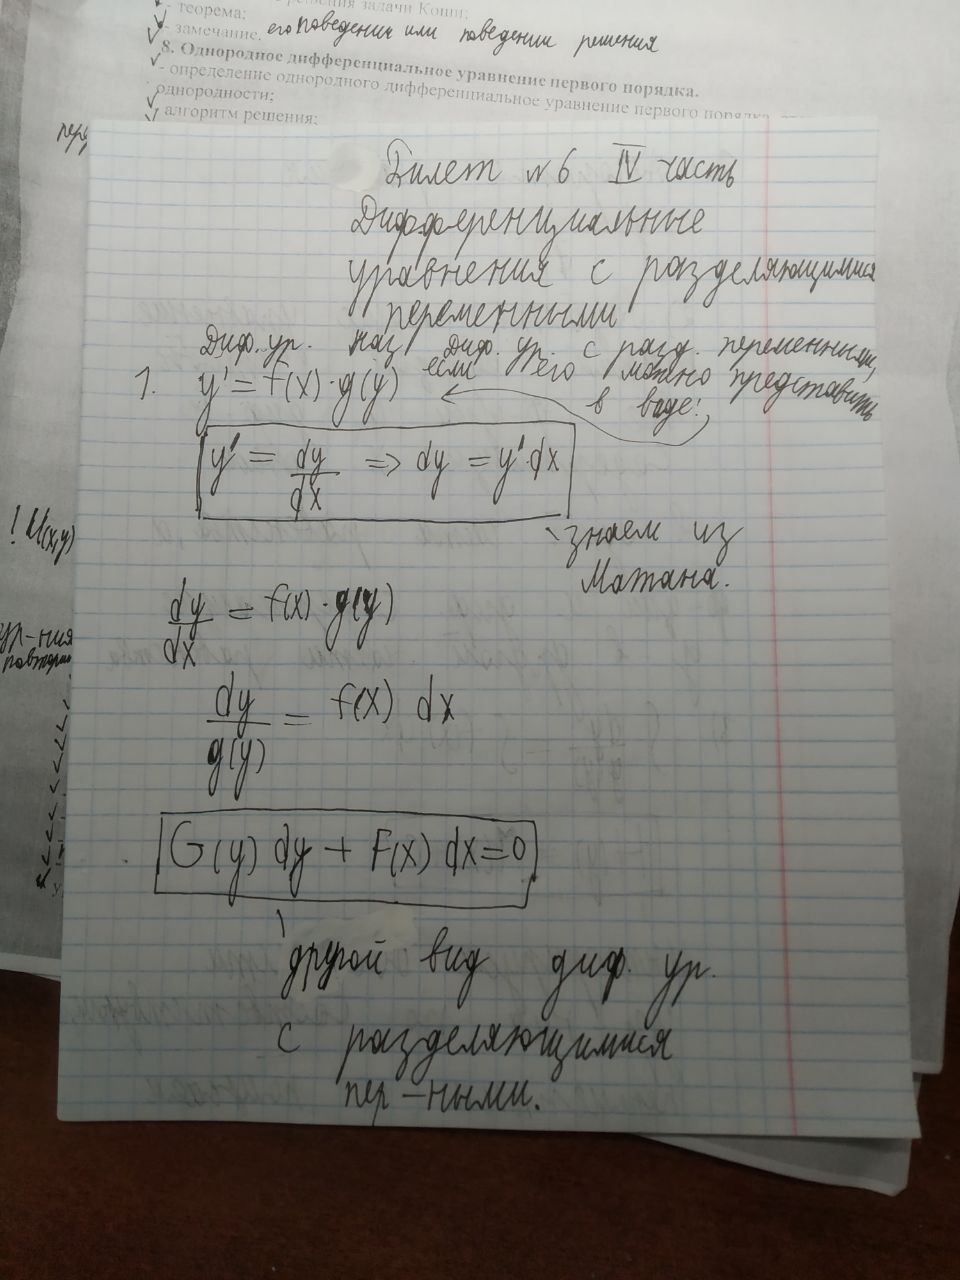 - теорема;
решения задачи Коши;
- замечание. его поведении или поведении решения
8. Однородное дифференциальное уравнение первого порядка.
- определение однородного дифференциальное уравнение первого порядка,
однородности;
алгоритм решения;
Билет №6 IV часть
Дифференциальные
уравнения с разделяющимися
переменными
Диф. ур. наз диф. ур. с разд. переменными,
если его можно представить
в виде:
1. y' = f(x) · g(y)
y' = dy/dx => dy = y' · dx
знаем из
Матана.
dy/dx = f(x) · g(y)
dy/g(y) = f(x) dx
G(y) dy + F(x) dx = 0
другой вид диф. ур.
с разделяющимися
пер-ными.
! M(x,y)
ур-ния